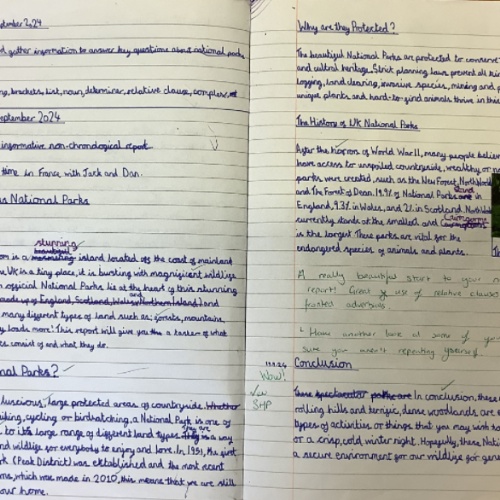 September 2024
gather information to answer key questions about national parks
brackets, list, noun, determiner, relative clause, complex
September 2024
informative non-chronological report
time in France with Jack and Dan.
National Parks
stunning
is a island located off the coast of mainland
UK is a tiny place, it is bursting with magnificent wildlife
official National Parks lie at the heart of this stunning
made up of England, Scotland, Wales and Northern Ireland) and
many different types of land such as; forests, mountains,
loads more! This report will give you a taster of what
consist of and what they do.
nal Parks?
luscious, large protected areas of countryside. Whether
hiking, cycling or birdwatching, a National Park is one of
to its large range of different land types. They are a way
and wildlife for everybody to enjoy and love. In 1951, the first
(Peak District) was established and the most recent
which was made in 2010, this means that we are still
our home.
Why are they Protected?
The beautiful National Parks are protected to conserve
and cultural heritage. Strict planning laws prevent all
logging, land clearing, invasive species, mining and
unique plants and hard-to-find animals thrive in the
The History of UK National Parks
After the horrors of World War II, many people believe
have access to unspoiled countryside, wealthy or
parks were created, such as the New Forest, North
and The Forest of Dean. 19.9% of National Parks in
England, 9.3% in Wales, and 2% in Scotland.
currently stands at the smallest and Cairngorms
is the largest. These parks are vital for the
endangered species of animals and plants.
A really beautiful start to your
report! Great use of relative clauses
fronted adverbials
Have another look at some of
sure you aren't repeating yourself
Conclusion
Wow!
SHP
In conclusion, these
rolling hills and terrific, dense woodlands are
types of activities or things that you may wish to
or a crisp, cold winter night. Hopefully, these
a secure environment for our wildlife for